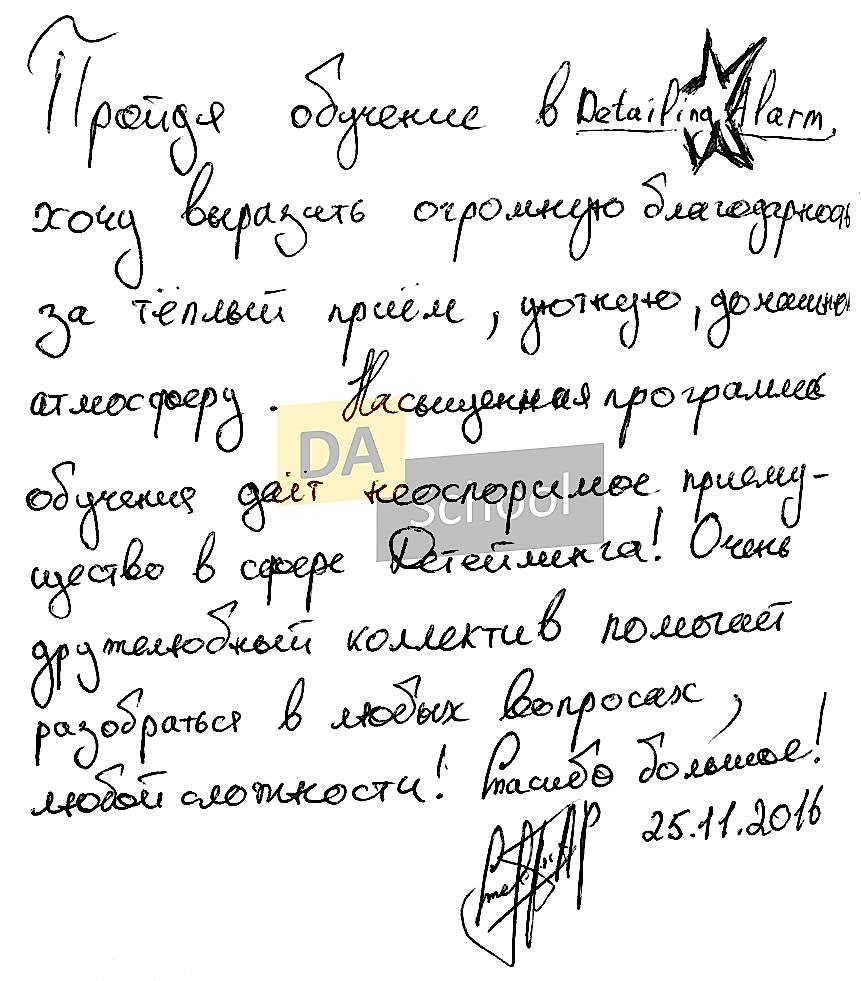 Пройдя обучение в Detailing Alarm,
хочу выразить огромную благодарность
за тёплый приём, уютную, домашнюю
атмосферу. Насыщенная программа
DA
обучения даёт неоспоримое приему-
School
щество в сфере Детейлинга! Очень
дружелюбный коллектив помогает
разобраться в любых вопросах,
любой сложности! Спасибо большое!
25.11.2016